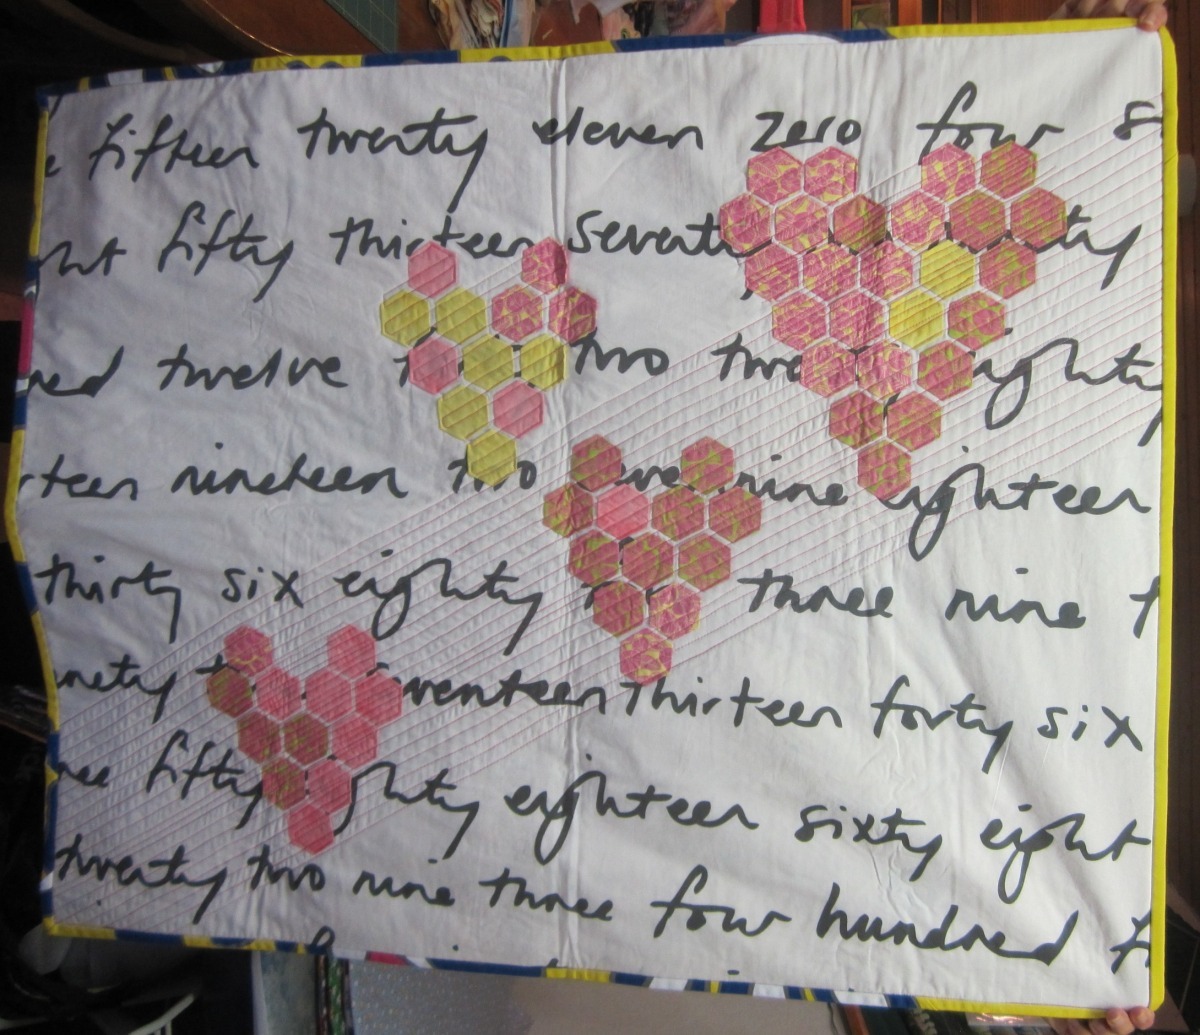 fifteen twenty eleven zero four
fifty thirteen
twelve two
nineteen two nine eighteen
thirty six eighty three nine
thirteen forty six
fifty eighteen sixty eight
twenty two nine three four hundred